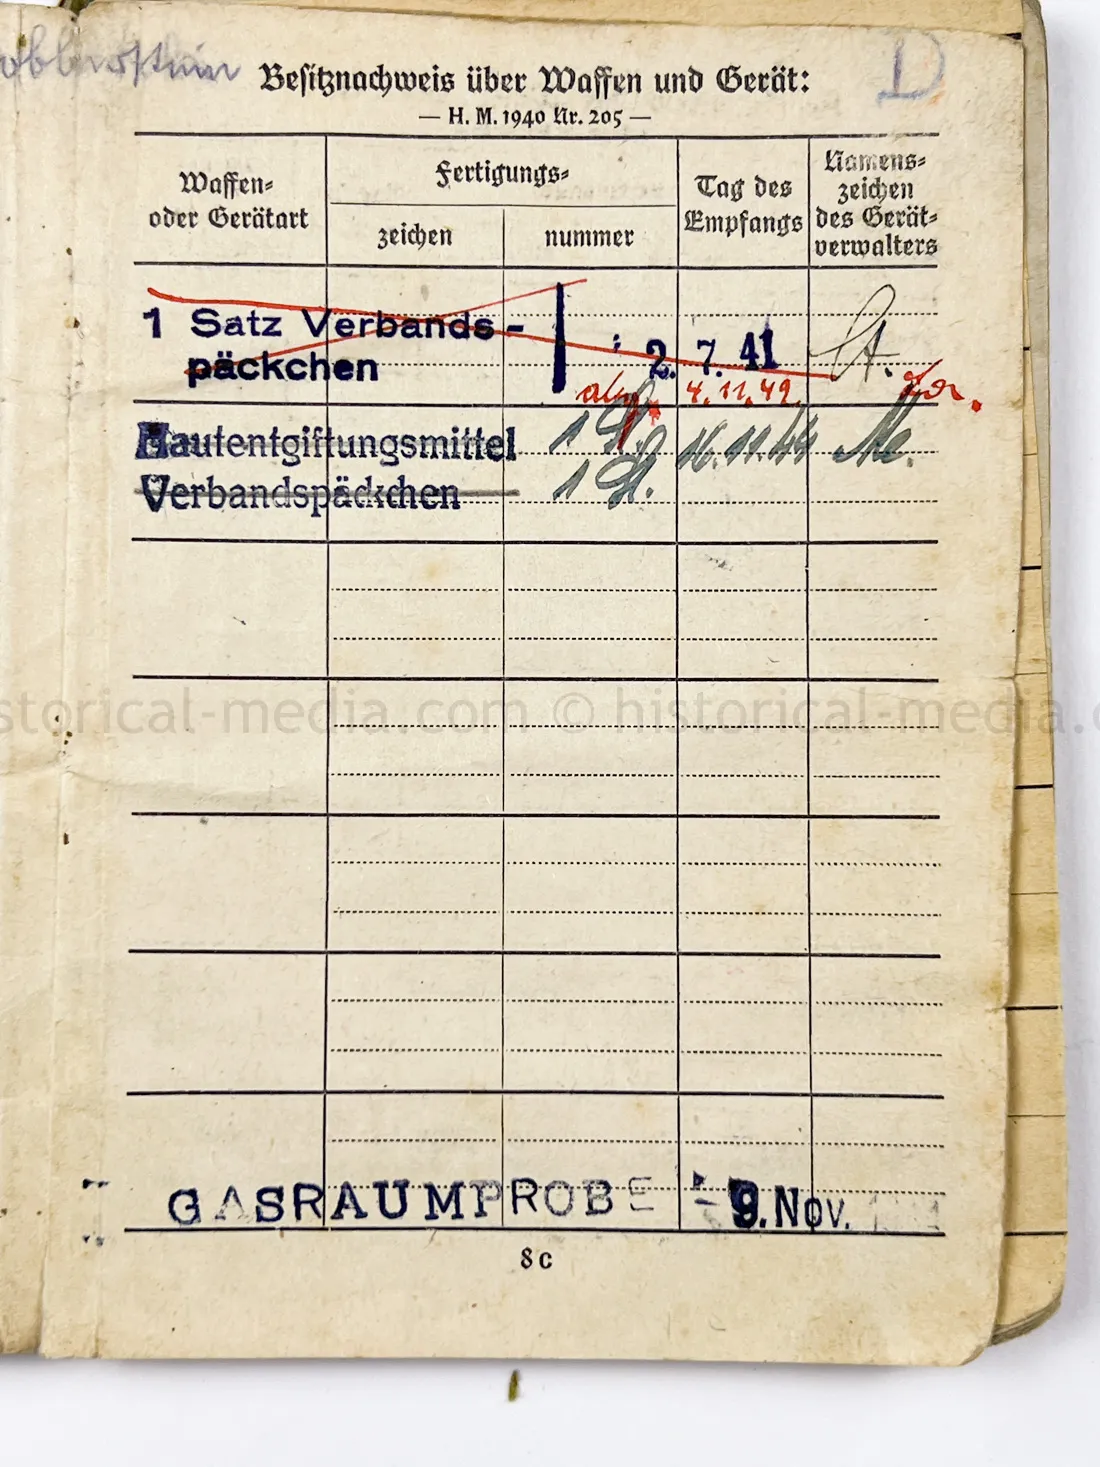 D
Besitznachweis über Waffen und Gerät:
— H. M. 1940 Nr. 205 —
Waffen-
oder Gerätart
Fertigungs-
zeichen
nummer
Tag des
Empfangs
Namens-
zeichen
des Gerät-
verwalters
1 Satz Verbands-
päckchen
2. 7. 41
4.11.42.
Hautentgiftungsmittel
1
16.11.44
Verbandspäckchen
1
historical-media.com © historical-media.c
GASRAUMPROBE - 9. Nov.
8c